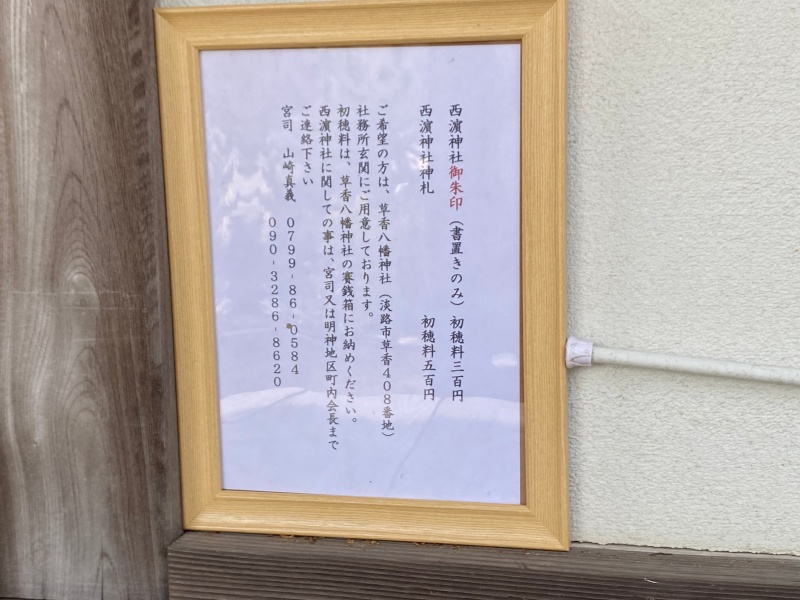 西濵神社御朱印（書置きのみ）初穂料三百円
西濵神社神札　初穂料五百円
ご希望の方は、草香八幡神社（淡路市草香４０８番地）
社務所玄関にご用意しております。
初穂料は、草香八幡神社の賽銭箱にお納めください。
西濵神社に関しての事は、宮司又は明神地区町内会長まで
ご連絡下さい
宮司　山崎真義　０７９９-８６-０５８４
０９０-３２８６-８６２０